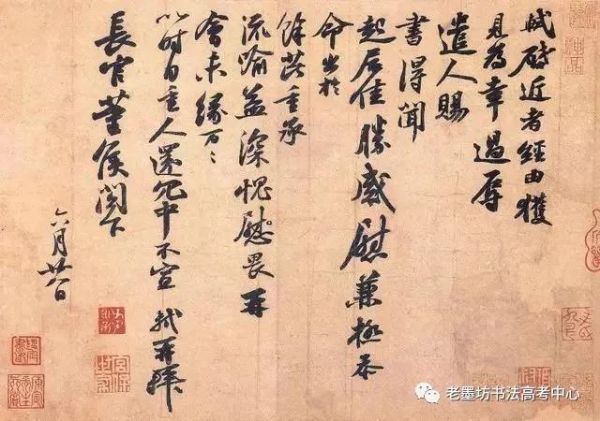 軾啓近者經由獲
見為幸過辱
遣人賜
書得聞
起居佳勝感慰兼極忝
命出於
餘芘重承
流喻益深愧慰畏再
會未緣万〻
以時自重人還冗中不宣 軾再拜
長官董侯閣下
六月廿八日
老墨坊书法高考中心